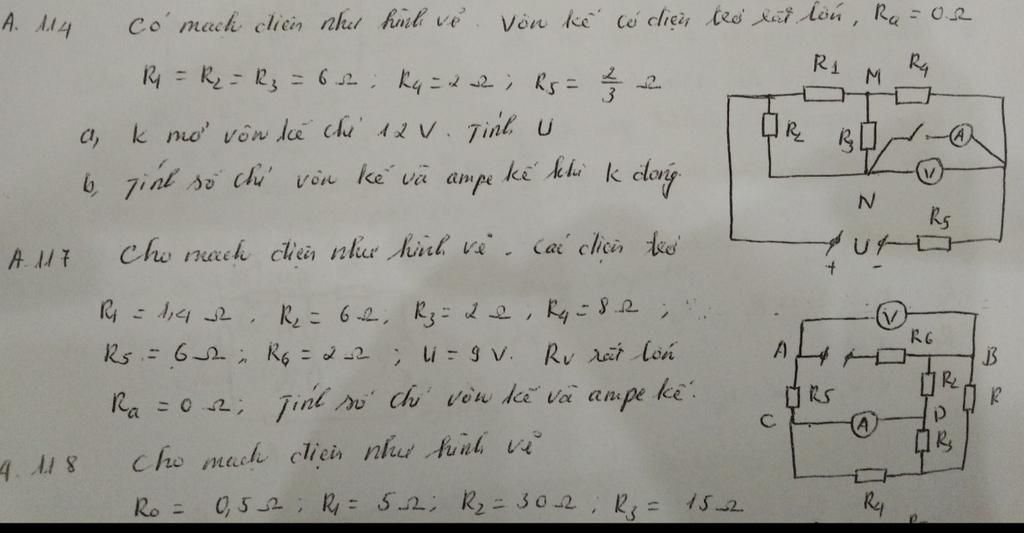 A. 114 Có mạch điện như hình vẽ. Vôn kế có điện trở rất lớn, Ra = 0 Ω
R1 = R2 = R3 = 6 Ω ; R4 = 2 Ω ; R5 = 2/3 Ω
a, K mở vôn kế chỉ 12 V. Tính U
b, Tính số chỉ vôn kế và ampe kế khi K đóng.
R1 M R4
R2 R3 A
V
N
R5
U
+ -
A. 117 Cho mạch điện như hình vẽ. Các điện trở
R1 = 1,4 Ω. R2 = 6 Ω, R3 = 2 Ω, R4 = 8 Ω ;
R5 = 6 Ω ; R6 = 2 Ω ; U = 9 V. Rv rất lớn
Ra = 0 Ω ; Tính số chỉ vôn kế và ampe kế.
V
A R6 B
R5 R2 R
C A D
R3
R4
A. 118 Cho mạch điện như hình vẽ
R0 = 0,5 Ω ; R1 = 5 Ω ; R2 = 30 Ω ; R3 = 15 Ω